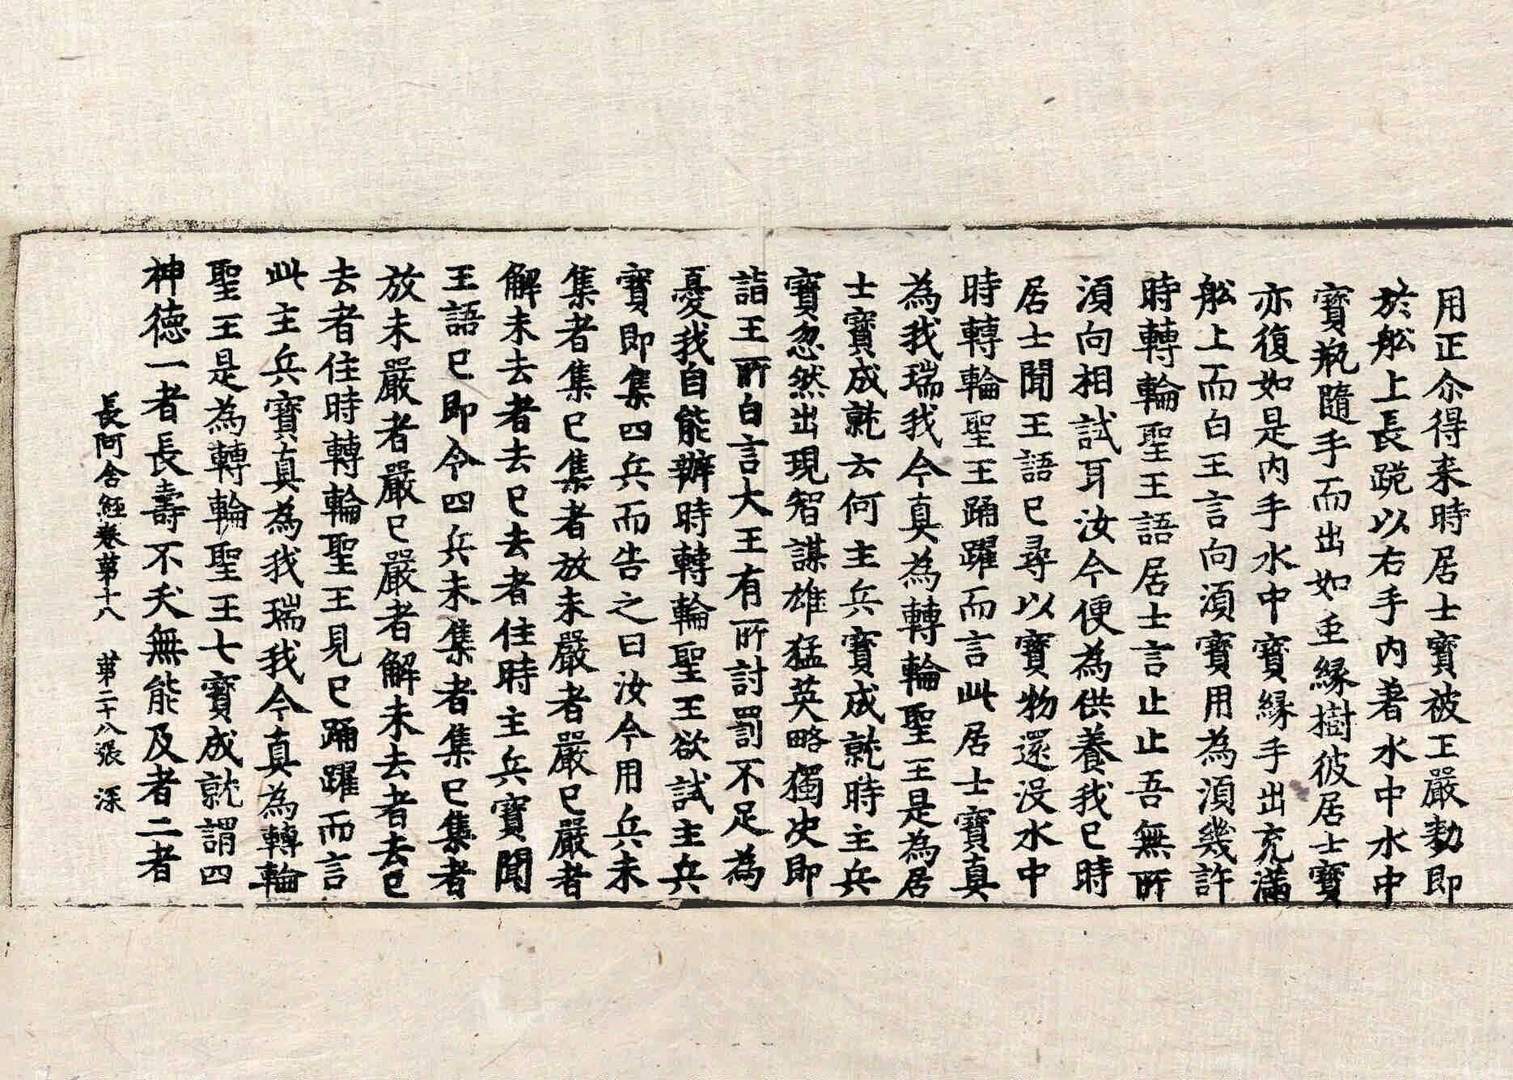 用正尒得来時居士寶被王嚴勅即
於舩上長跪以右手内著水中水中
寶瓶隨手而出如虫縁樹彼居士寶
亦復如是内手水中寶縁手出充滿
舩上而白王言向湏寶用為湏幾許
時轉輪聖王語居士言止止吾無所
湏向相試耳汝今便為供養我已時
居士聞王語已尋以寶物還没水中
時轉輪聖王踊躍而言此居士寶真
為我瑞我今真為轉輪聖王是為居
士寶成就云何主兵寶成就時主兵
寶忽然出現智謀雄猛英略獨决即
詣王所白言大王有所討罰不足為
憂我自能辦時轉輪聖王欲試主兵
寶即集四兵而告之曰汝今用兵未
集者集已集者放未嚴者嚴已嚴者
解未去者去已去者住時主兵寶聞
王語已即令四兵未集者集已集者
放未嚴者嚴已嚴者解未去者去已
去者住時轉輪聖王見已踊躍而言
此主兵寶真為我瑞我今真為轉輪
聖王是為轉輪聖王七寶成就謂四
神德一者長壽不夭無能及者二者
長阿含經卷第十八　第二十八張　深